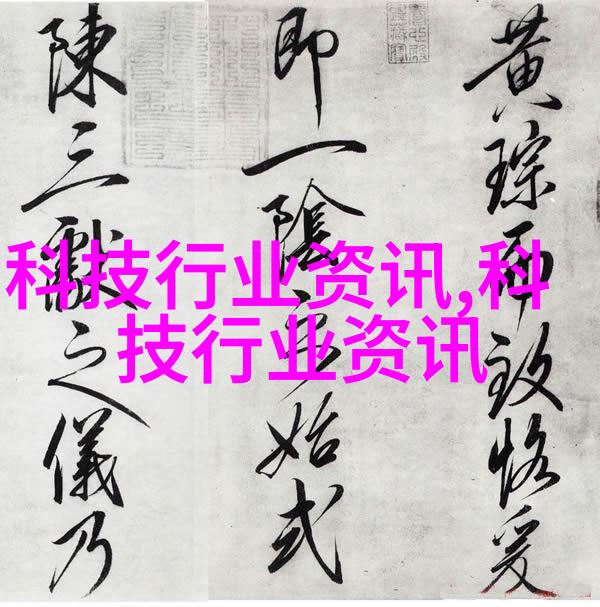 黄琮而致恪爰
即一陰始式
陳三獻之儀乃
科技行业资讯,科
技行业资讯